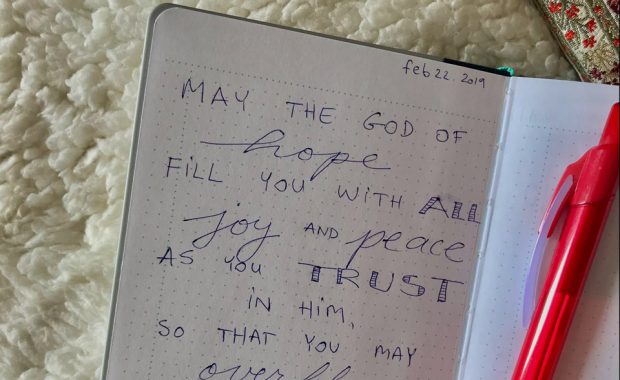 feb 22. 2019
MAY THE GOD OF
hope
FILL YOU WITH ALL
joy AND peace
AS YOU TRUST
IN HIM,
SO THAT YOU MAY